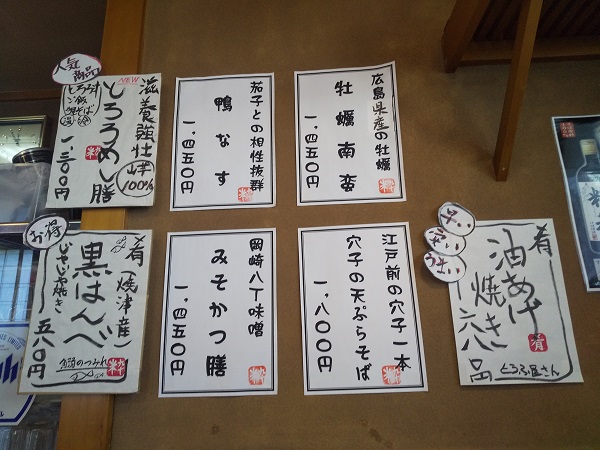 人気商品
NEW
滋養強壮
山芋100%
とろろめし膳
とろろ汁
ご飯
一、三〇〇円
茄子との相性抜群
鴨なす
一、四五〇円
広島県産の牡蠣
牡蠣南蛮
一、四五〇円
お得
肴(焼津産)
黒はんぺ
五八〇円
岡崎八丁味噌
みそかつ膳
一、四五〇円
江戸前の穴子一本
穴子の天ぷらそば
一、八〇〇円
早い
安い
うまい
肴
油あげ
焼き
とうふ屋さん